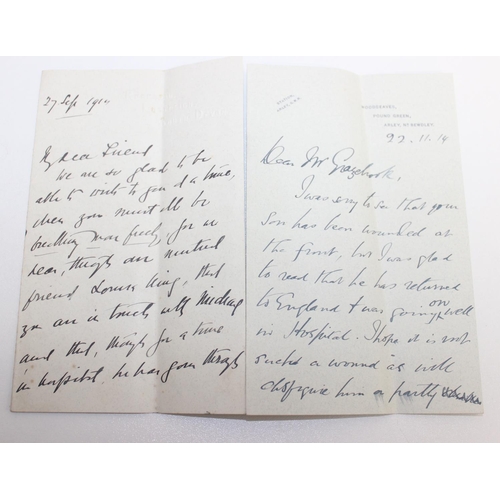 27 Sep 1914
My dear Friend
We are so glad to be
able to write to you at a time,
when you must all be
breathing more freely, for we
hear, through our mutual
friend Louisa King, that
you are in touch with
and that, though for a time
in hospital he has gone through
STATION,
WOODGRAVES,
22.11.14
Dear Mr Grazebrook,
I was sorry to see that your
Son has been wounded at
the front, but I was glad
to read that he has returned
to England & was going on well
in Hospital. I hope it is not
such a wound as will
disfigure him or partly